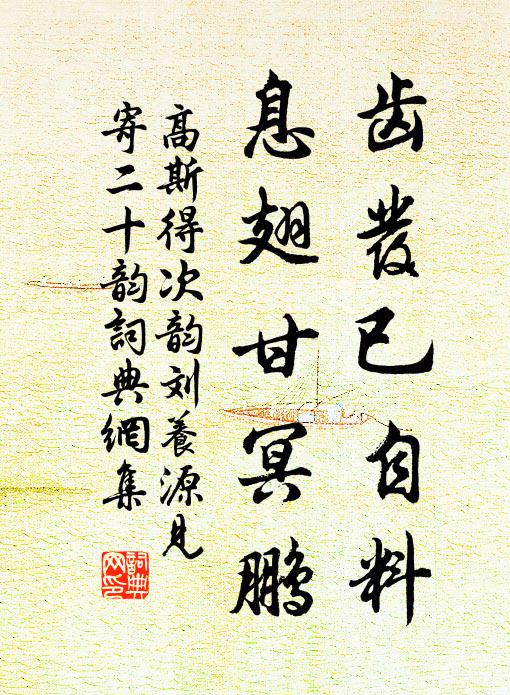 齿发已自料
息翅甘冥鹏
高斯得次韵刘养源见
寄二十韵詞典網集
詞典
网印